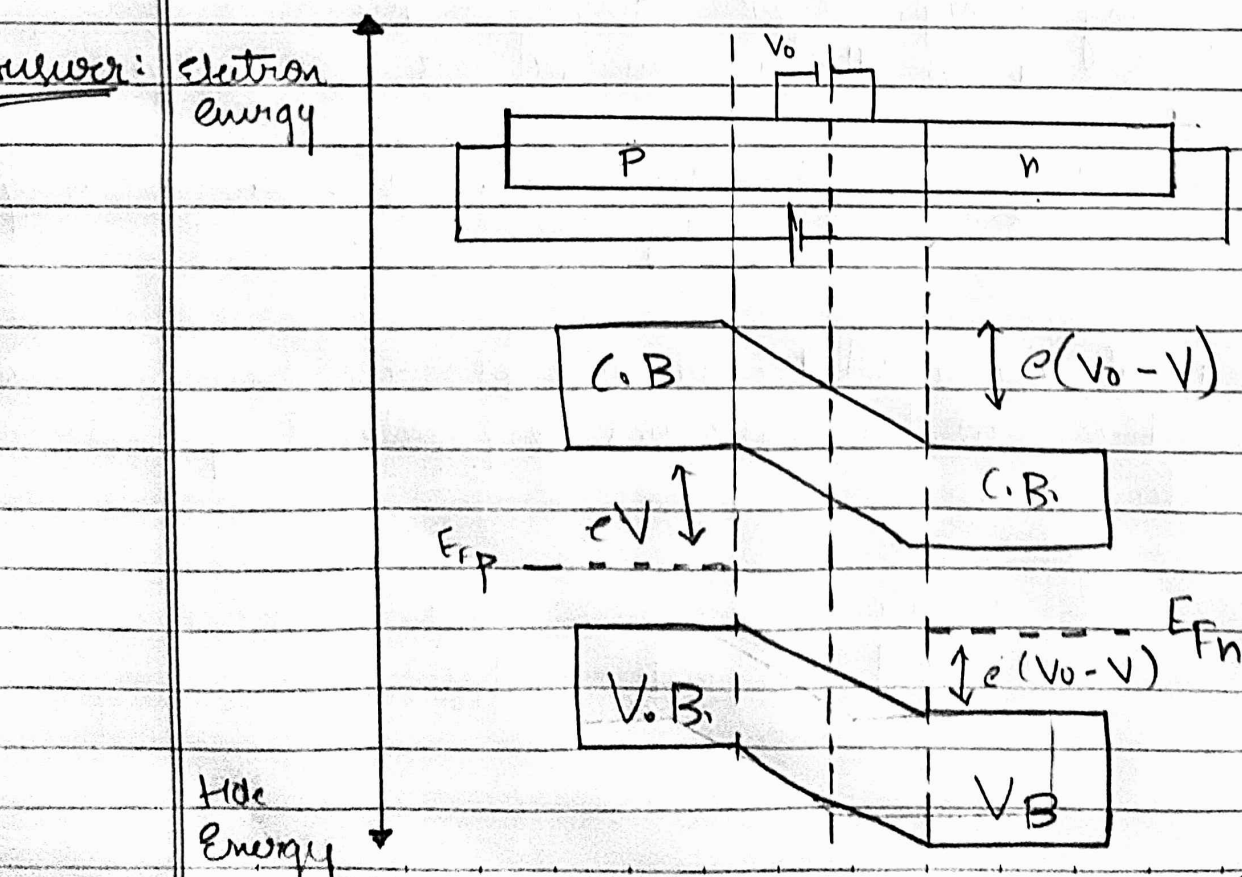 Answer: Electron
energy
V₀
P
n
C.B
e(V₀ - V)
C.B.
eV
E_Fp
E_Fn
e(V₀ - V)
V.B.
VB
Hole
Energy